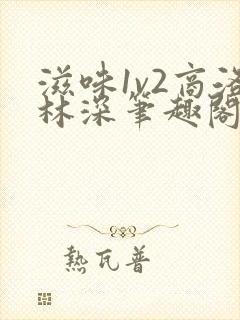 滋味1v2高洛
林深筆趣閣
熱瓦普